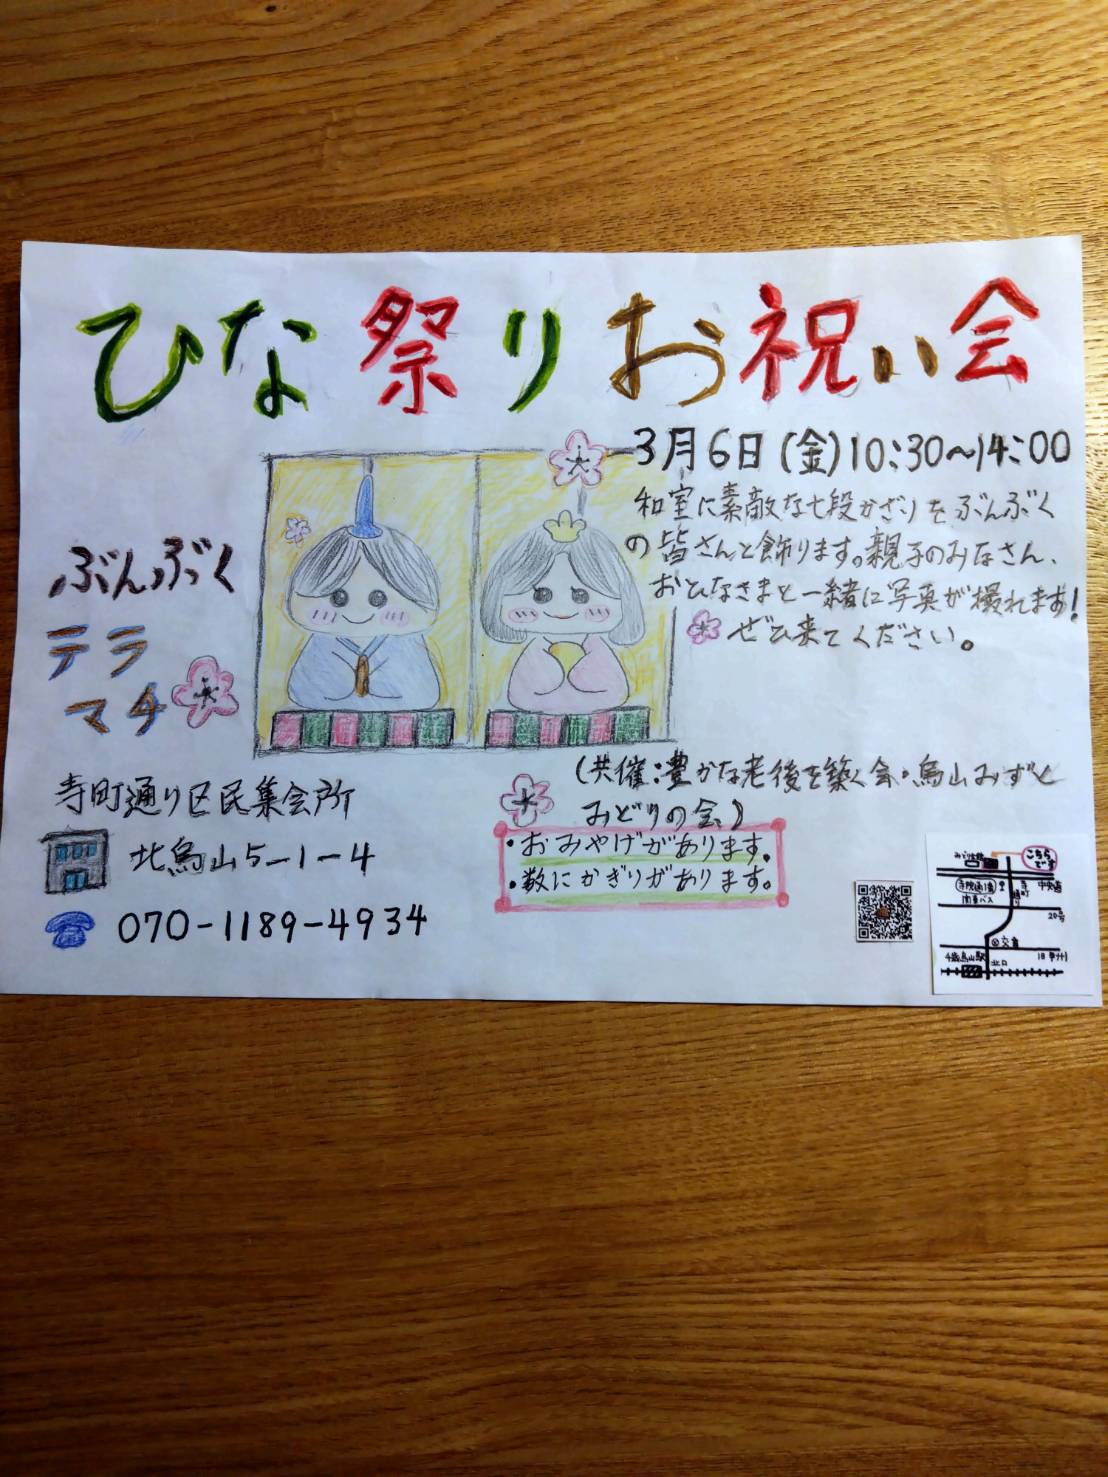 ひな祭りお祝い会
3月6日(金)10:30~14:00
和室に素敵な七段かざりをぶんぶく
の皆さんと飾ります。親子のみなさん、
おひなさまと一緒に写真が撮れます!
ぜひ来てください。
ぶんぶく
テラ
マチ
寺町通り区民集会所
北烏山5-1-4
070-1189-4934
(共催:豊かな老後を築く会・烏山みずと
みどりの会)
・おみやげがあります。
・数にかぎりがあります。
こちら
です
寺院通
寺町
通り
中央道
関東バス
20号
交番
千歳烏山駅
北口
旧甲州